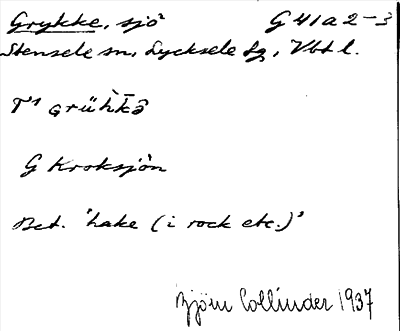 Grykke, sjö G 41 a 2-3
Stensele sn, Lycksele lg, Vbt l.
G Kroksjön
Bet. 'hake (i rock etc.)'
Björn Collinder 1937